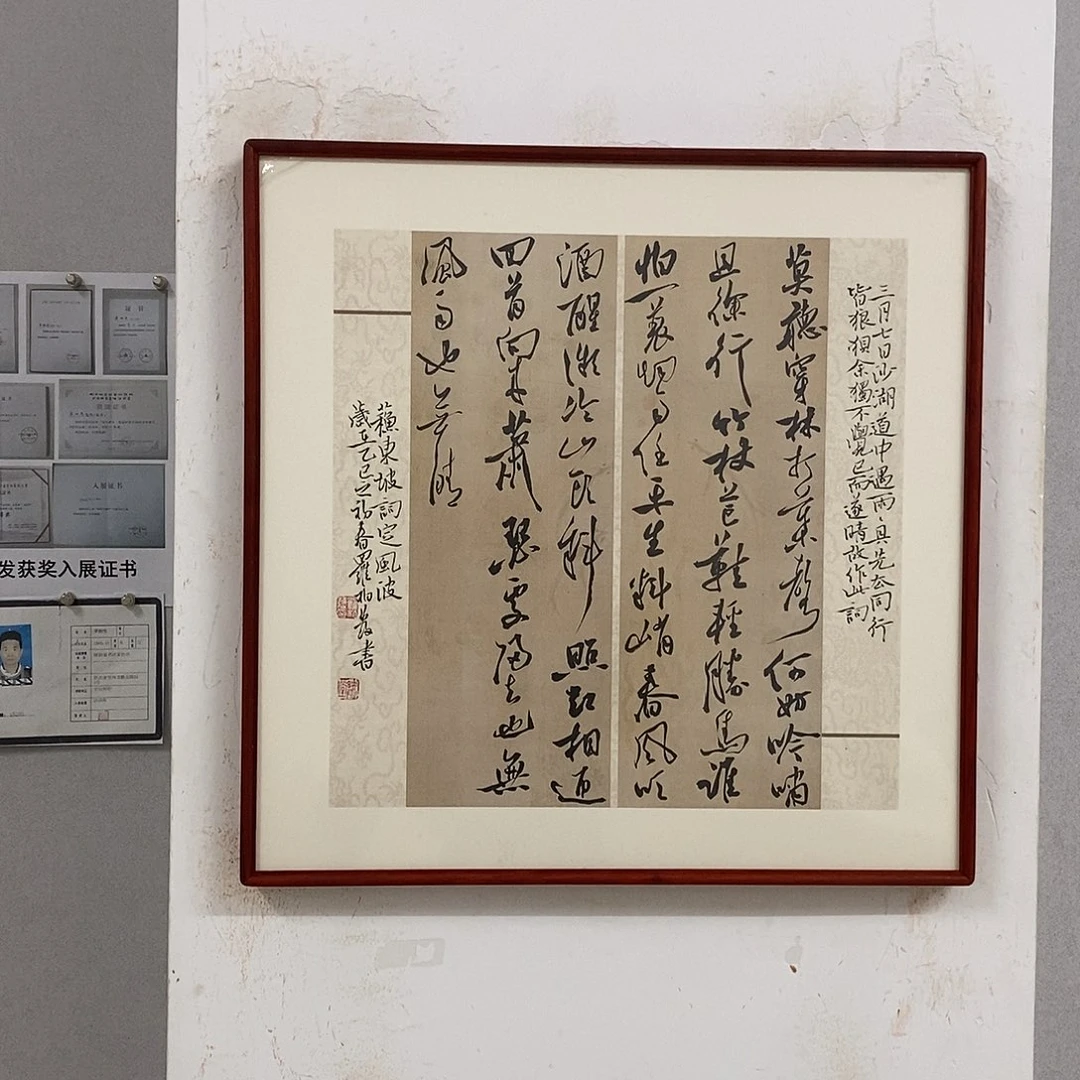 三月七日沙湖道中遇雨〻具先去同行
皆狼狽余獨不覺已而遂晴故作此詞
莫聽穿林打葉聲何妨吟嘯
且徐行竹杖芒鞋輕勝馬誰
怕一蓑烟雨任平生料峭春風吹
酒醒微冷山頭斜照却相迎
回首向來蕭瑟處歸去也無
風雨也無晴
蘇東坡詞定風波
歲在乙巳之初春羅書
入展证书
发获奖入展证书